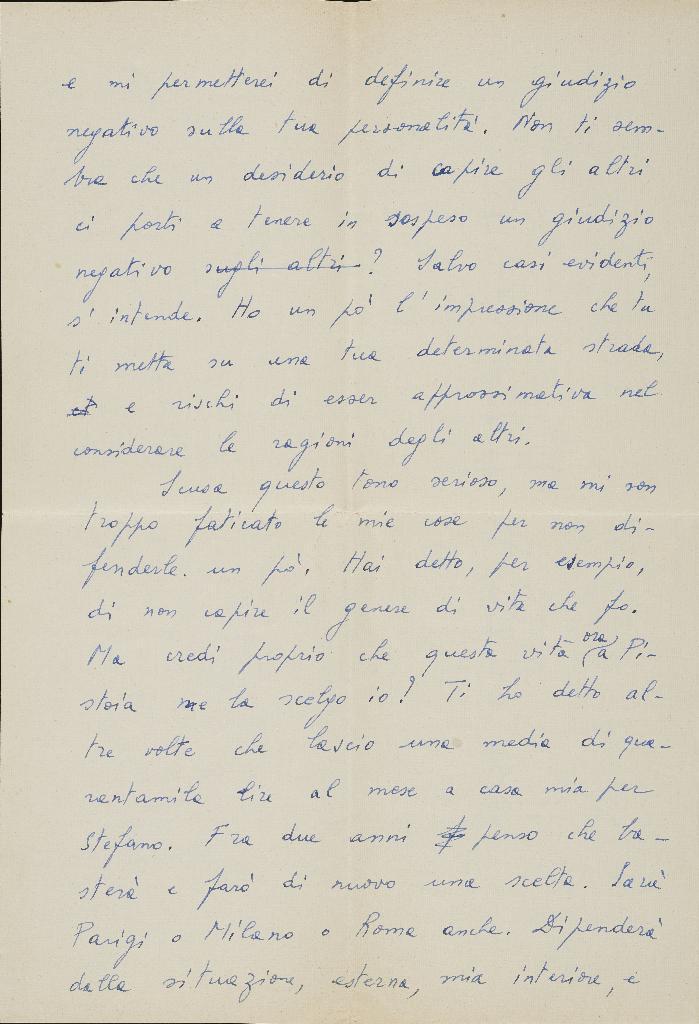 e mi permetterei di definire un giudizio
negativo sulla tua personalità. Non ti sem-
bra che un desiderio di capire gli altri
ci porti a tenere in sospeso un giudizio
negativo sugli altri? Salvo casi evidenti,
s'intende. Ho un pò l'impressione che tu
ti metta su una tua determinata strada,
e rischi di esser approssimativa nel
considerare le ragioni degli altri.
Scusa questo tono serioso, ma mi son
troppo faticato le mie cose per non di-
fenderle un pò. Hai detto, per esempio,
di non capire il genere di vita che fo.
Ma credi proprio che questa vita ora a Pi-
stoia me la scelgo io? Ti ho detto al-
tre volte che lascio una media di qua-
rantamila lire al mese a casa mia per
Stefano. Fra due anni penso che ba-
sterà e farò di nuovo una scelta. Sarà
Parigi o Milano o Roma anche. Dipenderà
dalla situazione, esterna, mia interiore, e